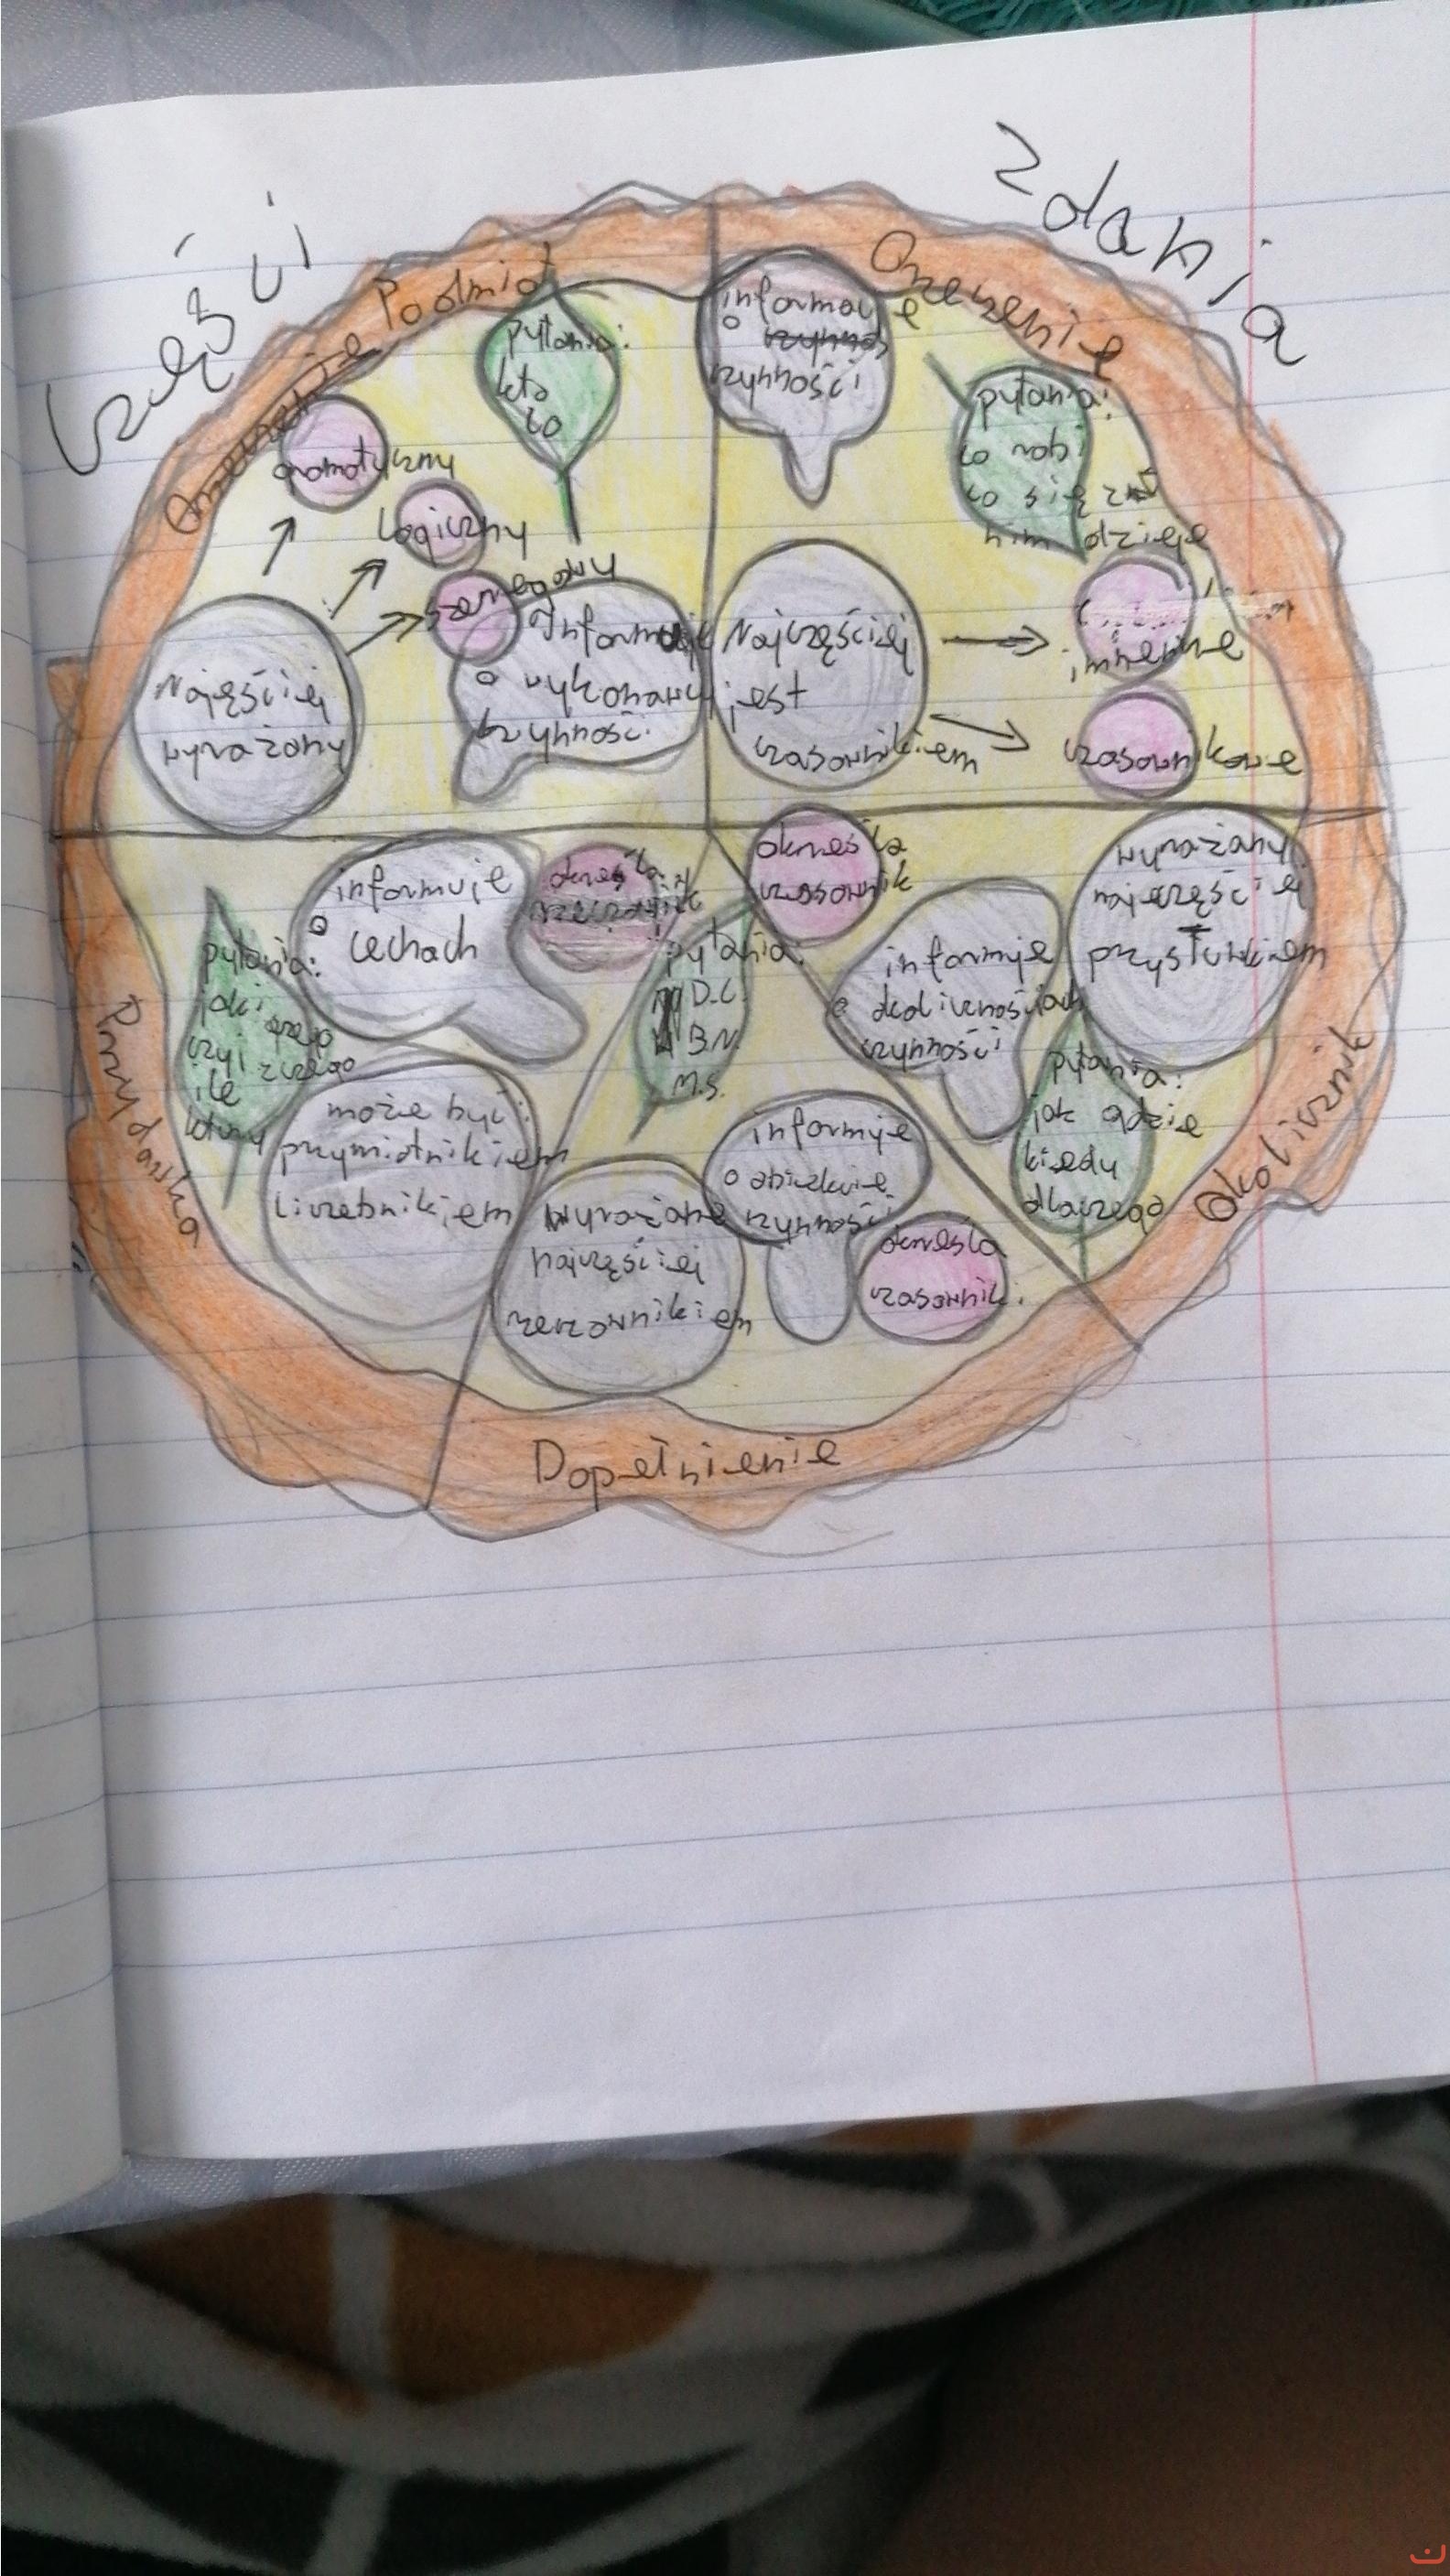 Części
Zdania
Podmiot
pytania:
kto
co
gramatyczny
Logiczny
szeregowy
Najęściej
wyrażony
Informuje
o wykonawcy
czynności.
Orzeczenie
informację
o
czynności
pytania:
co robi
co się z
nim dzieje
Najczęściej
jest
czasownikiem
imienne
czasownikowe
Przydawka
informuje
o
cechach
określa
rzeczownik
pytania:
jaki
czyj
ile
który
czego
z czego
może być:
przymiotnikiem
liczebnikiem
Dopełnienie
pytania:
D.C.
B.N.
M.S.
wyrażone
najczęściej
rzeczownikiem
informuje
o obiekcie
czynności
określa
czasownik.
Okolicznik
określa
czasownik
informuje
o okolicznościach
czynności
wyrażany
najczęściej
przysłówkiem
pytania:
jak gdzie
kiedy
dlaczego